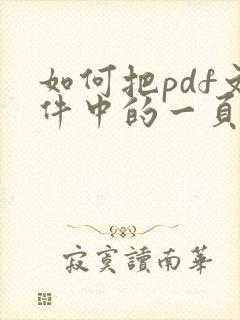 如何把pdf文
件中的一頁
寂寞讀南華